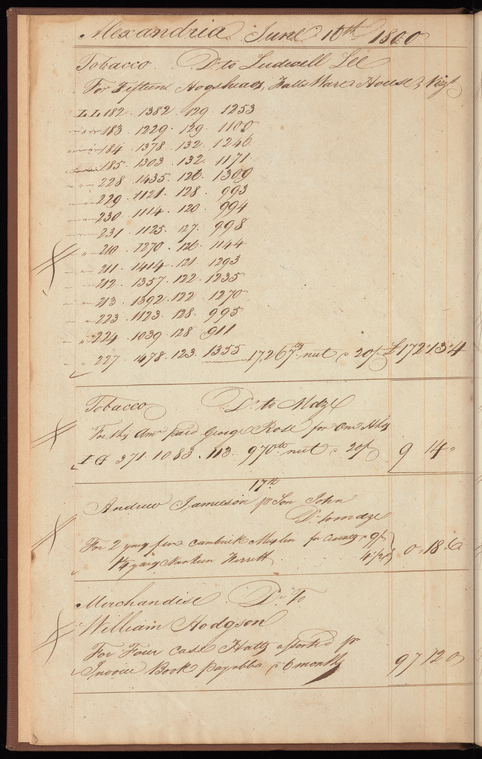 Alexandria June 10th 1800
Tobacco Dr to Ludwell Lee
For Fifteen Hogsheads, Falls Ware House, Vizt
LL 182 . 1382 . 129 1253
183 . 1229 . 129 . 1100
184 . 1378 . 132 . 1246
185 . 1303 . 132 . 1171
228 . 1435 . 126 . 1309
229 . 1121 . 128 . 993
230 . 1114 . 120 . 994
231 . 1125 . 127 . 998
210 . 1270 . 126 . 1144
211 . 1414 . 121 . 1293
212 . 1357 . 122 . 1235
213 . 1392 . 122 . 1270
223 . 1123 . 128 . 995
224 . 1039 . 128 . 911
227 . 1478 . 123 . 1355 17,267 nut a 20/ £172.13.4
Tobacco Dr to Mdze
For this Amt paid George for One Hhd
371 . 1083 . 113 . 970 nut a 20/ 9 14 "
17th
Andrew Jamieson pr Son John
Dr to mdze
For 2 yards fine cambrick Muslin for a 9/
yard Nankeen 4/ 0 . 18 . 6
Merchandise Dr To
William Hodgson
For Four Case Hatts assorted pr
Invoice Book payable a 6 months 97 12 0